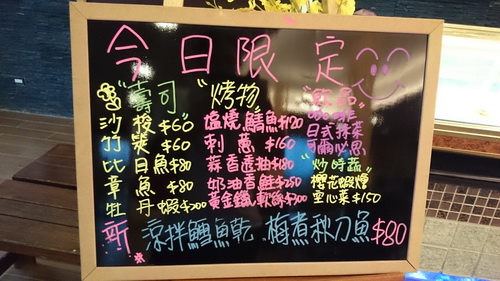 今日限定
"壽司"
沙梭$60
竹莢$60
比目魚$80
章魚$80
牡丹蝦$200
"烤物"
塩燒鯖魚$120
刺蔥$160
蒜香透抽$180
奶油香鮭$250
黃金鐵軟絲$300
"飲品"
日式抹茶
可爾必思
"炒時蔬"
櫻花蝦燴
空心菜$150
新 涼拌鱈魚乾、梅煮秋刀魚$80